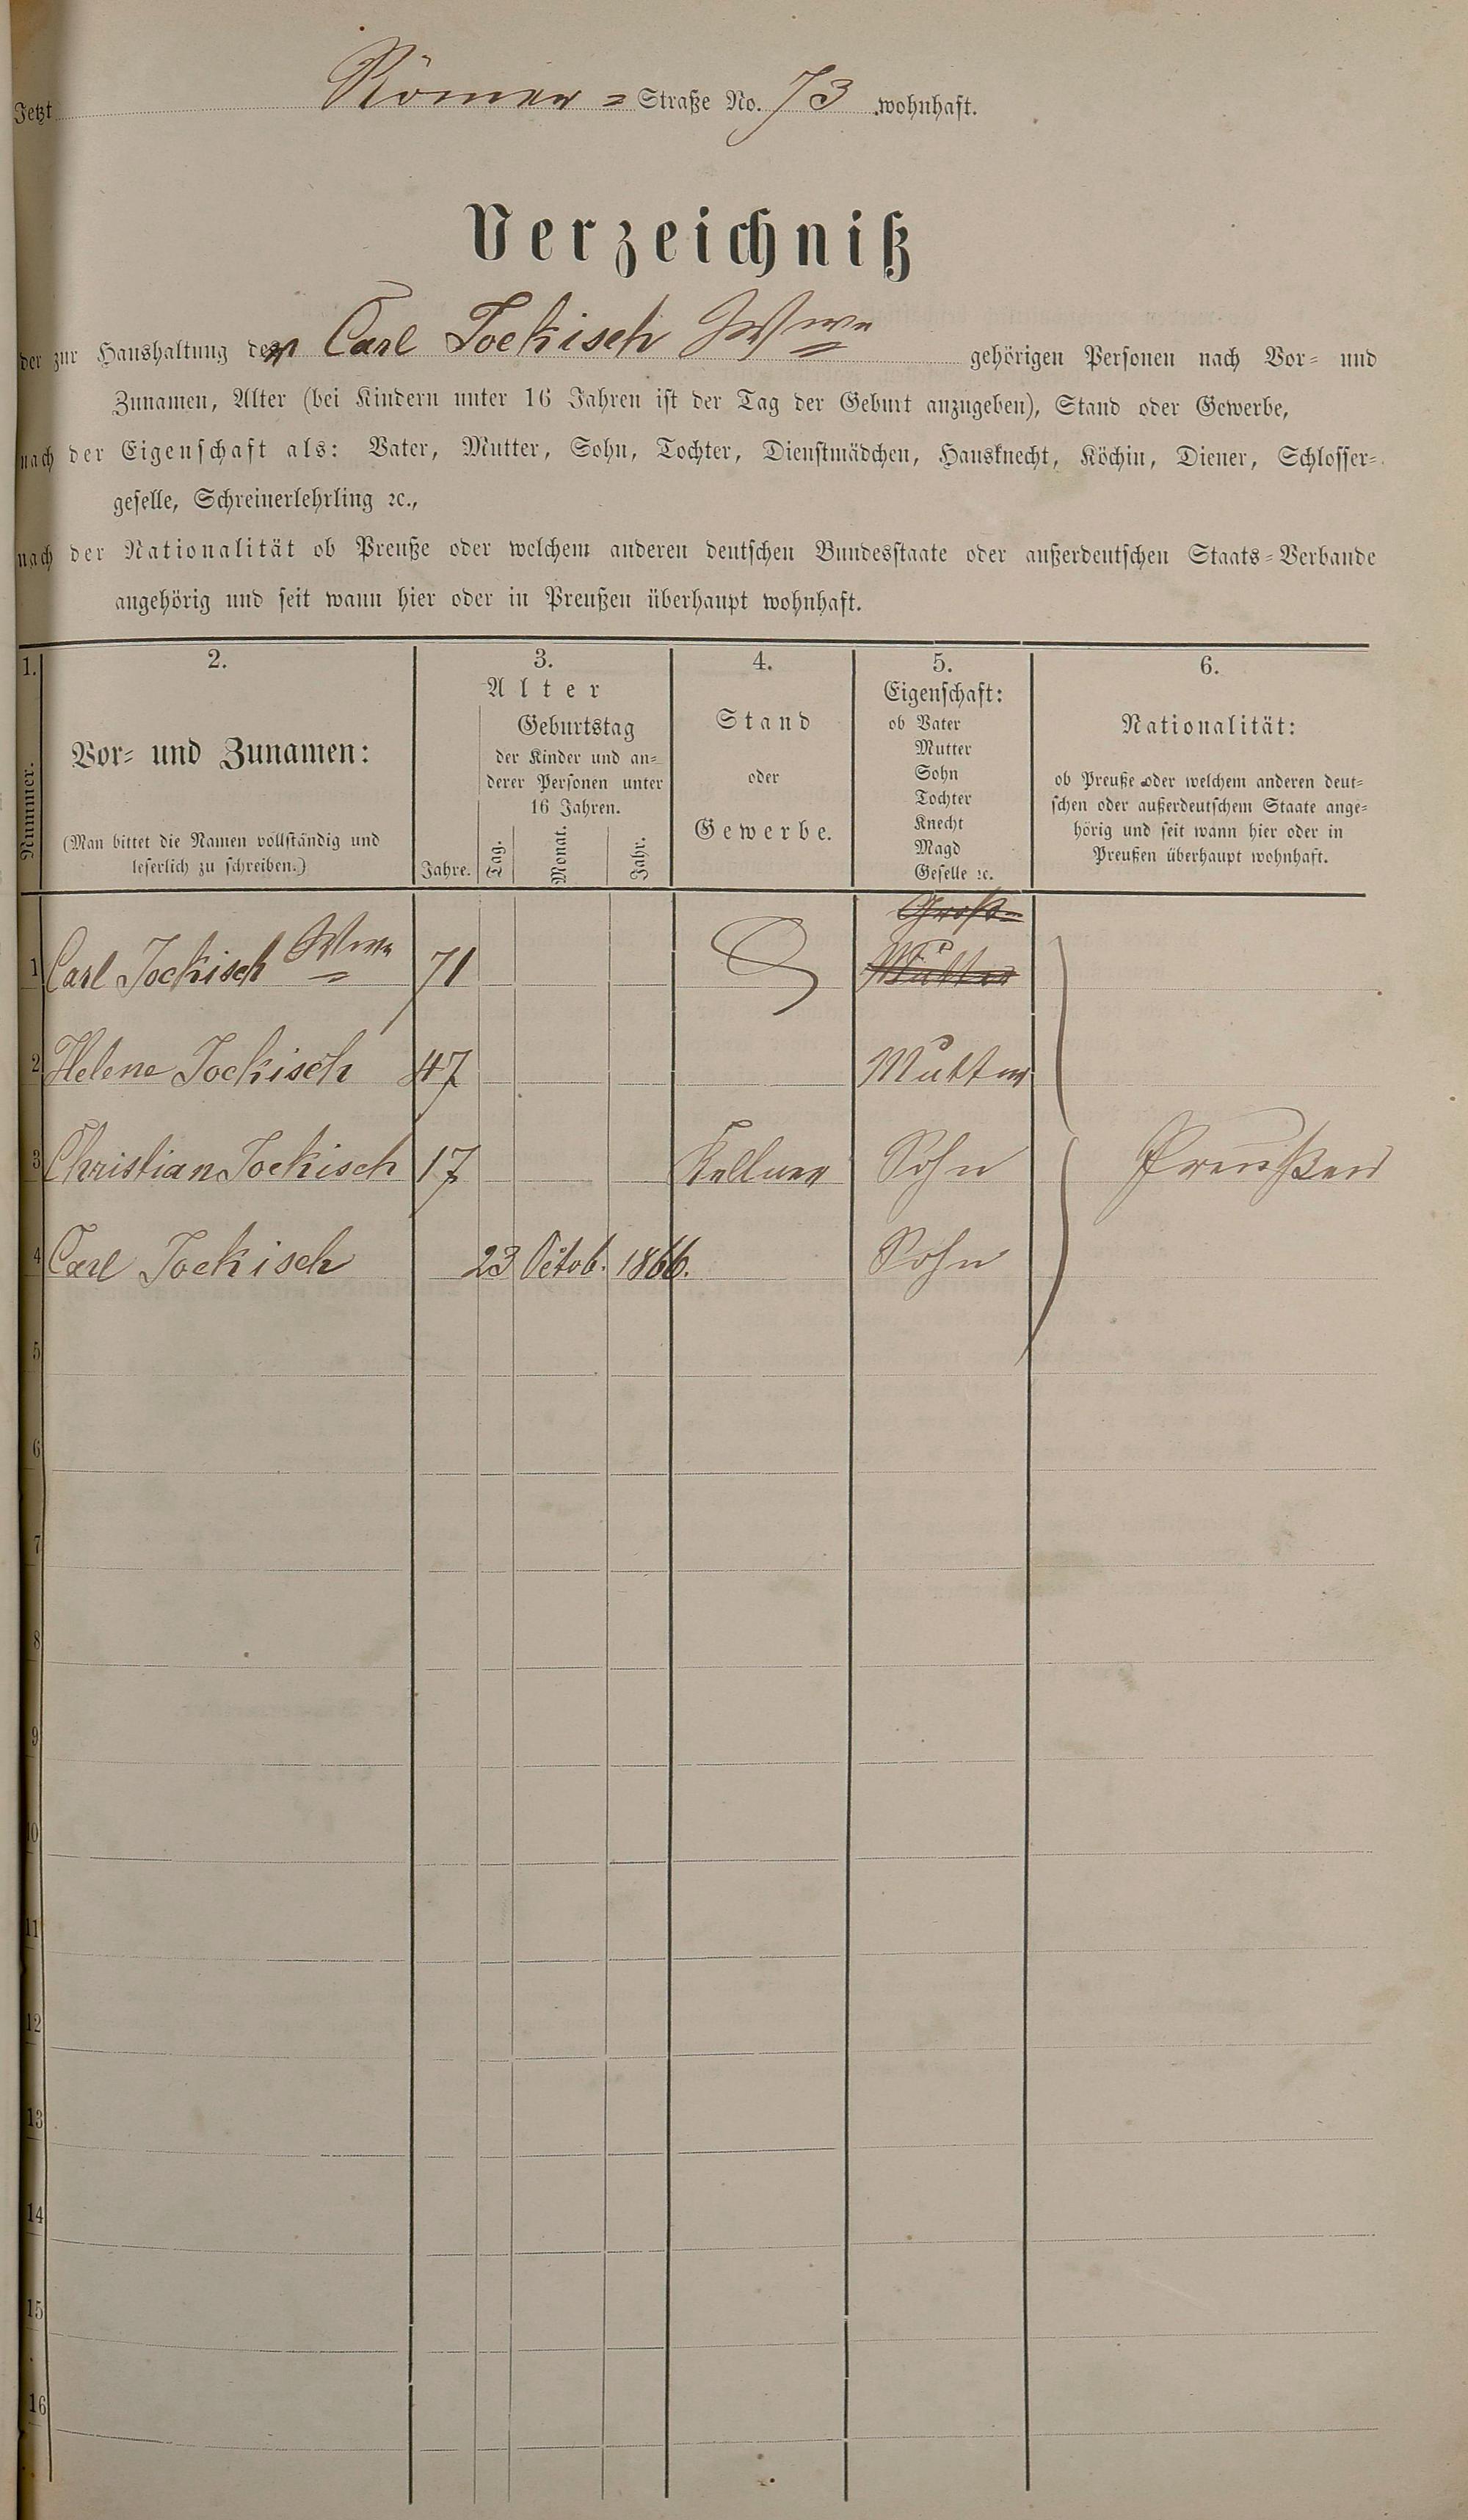 Jetzt Römer = Straße No. 73 wohnhaft.
Verzeichniß
der zur Haushaltung der Carl Jockisch Wwe gehörigen Personen nach Vor= und
Zunamen, Alter (bei Kindern unter 16 Jahren ist der Tag der Geburt anzugeben), Stand oder Gewerbe,
nach der Eigenschaft als: Vater, Mutter, Sohn, Tochter, Dienstmädchen, Hausknecht, Köchin, Diener, Schlosser=
geselle, Schreinerlehrling ꝛc.,
nach der Nationalität ob Preuße oder welchem anderen deutschen Bundesstaate oder außerdeutschen Staats=Verbande
angehörig und seit wann hier oder in Preußen überhaupt wohnhaft.
1.
Nummer.
2.
Vor= und Zunamen:
(Man bittet die Namen vollständig und
leserlich zu schreiben.)
3.
Alter
Jahre.
Geburtstag
der Kinder und an=
derer Personen unter
16 Jahren.
Tag. Monat. Jahr.
4.
Stand
oder
Gewerbe.
5.
Eigenschaft:
ob Vater
Mutter
Sohn
Tochter
Knecht
Magd
Geselle ꝛc.
6.
Nationalität:
ob Preuße oder welchem anderen deut=
schen oder außerdeutschem Staate ange=
hörig und seit wann hier oder in
Preußen überhaupt wohnhaft.
Groß=
1 Carl Jockisch Wwe 71 Mutter
2 Helene Jockisch 47 Mutter
3 Christian Jockisch 17 Kellner Sohn Preußen
4 Carl Jockisch 23 Octob. 1866. Sohn
5
6
7
8
9
10
11
12
13
14
15
16